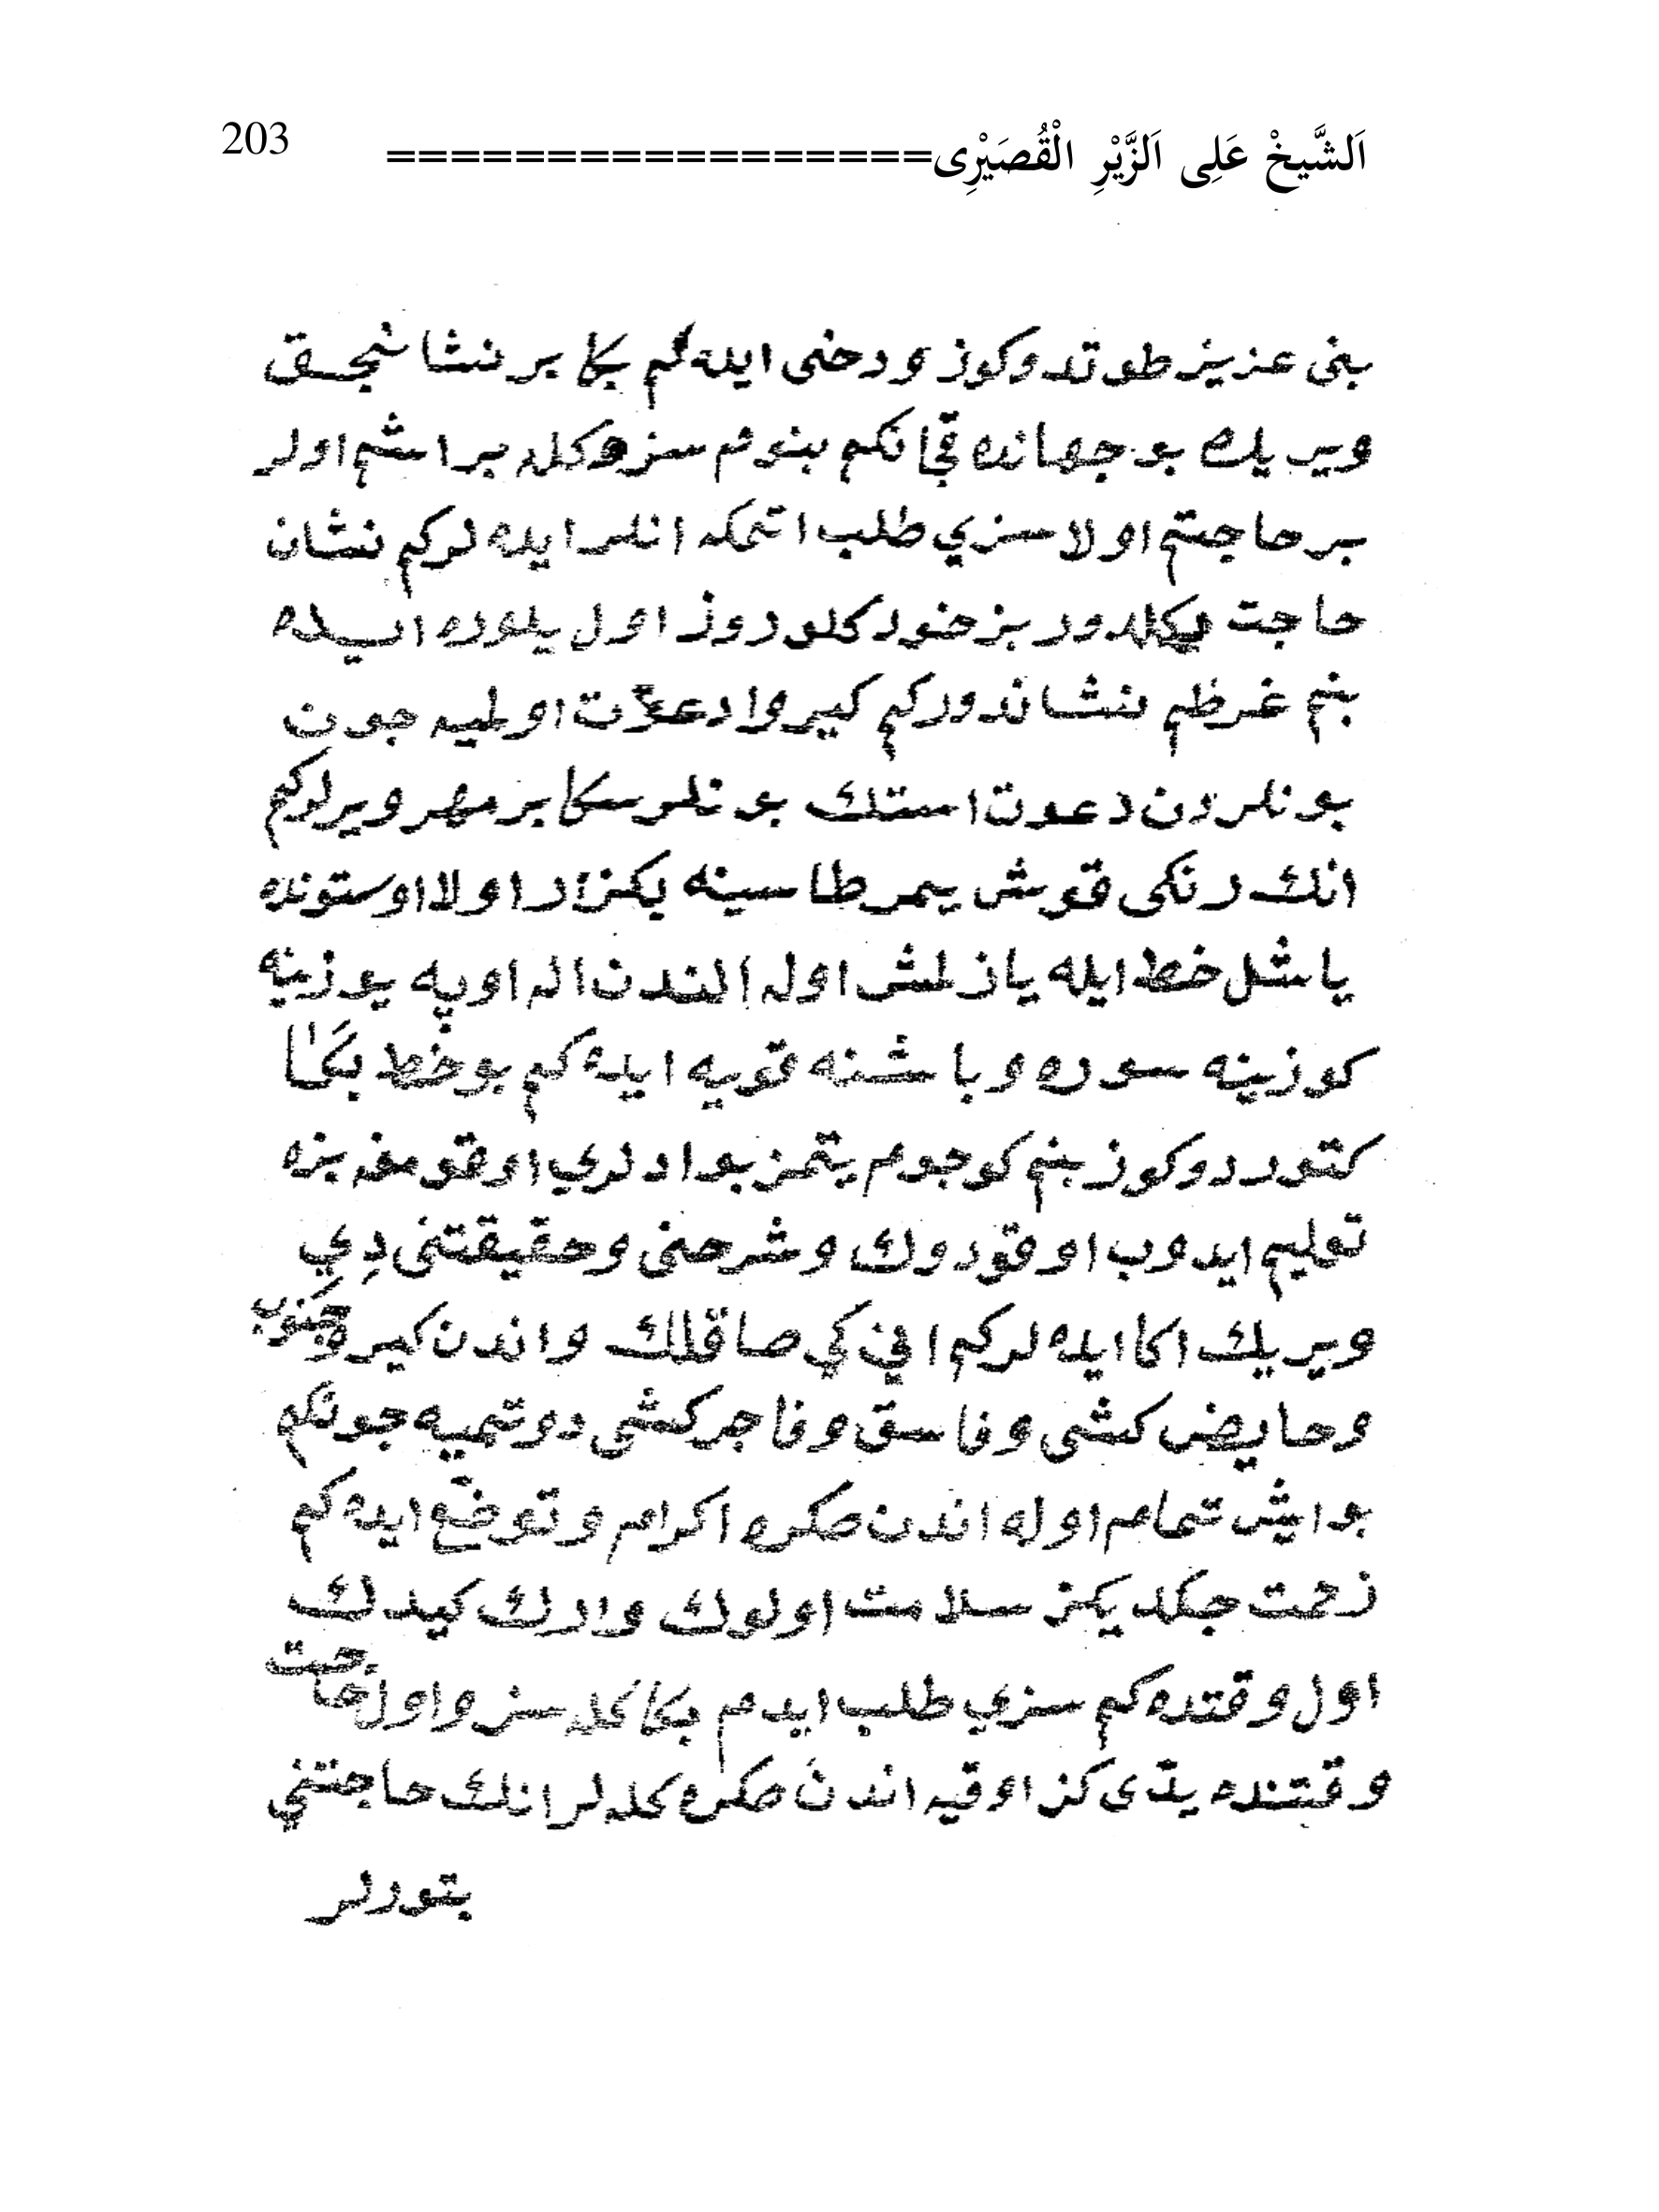 اَلشَّيخْ عَلِى اَلزَّيْرِ الْقُصَيْرِى================= 203
بنى عزيز طوتدوكوز و دخى ايله كم بكا بر نشانجق
ويريك بو جهانده قچانكم بنوم سزوكله بر اشم اولر
بر حاجتم اولا سزي طلب اتمكه انلر ايده لركم نشان
حاجت دكلدور بز خود كلوروز اول يلورده ايسله
بنم غرظم نشاندوركم كيروا دعوت اولميه جون
بونلردن دعوت استك بونلر سكا بر مهر ويرلركم
انك رنكى قوش يمرطاسينه بكزر اولا اوستونده
ياشل خط ايله يازلمش اوله الندن اله اوپه يوزينه
كوزينه سوره و باشنه قويه ايده كم بو خط بكا
كتوردوكوز بنم كوجوم يتمز بو ادلري اوقومغه بزه
تعليم ايدوب اوقودوك و شرحنى و حقيقتنى دِي
ويريك اكا ايده لركم اني كي صاقلك و اندن كيرو جنوب
و حايض كشى و فاسق و فاجر كشى دوتميه جونكم
بو ايش تمام اوله اندن صكره اكرام و توضّع ايده كم
زحمت جكلديكز سلامت اولوك وارك كيدك
اول وقتده كم سزي طلب ايدم بكا كله سز و اول حاجت
وقتنده يدّى كز اوقيه اندن صكره كله لر انك حاجتني
بتوردلر